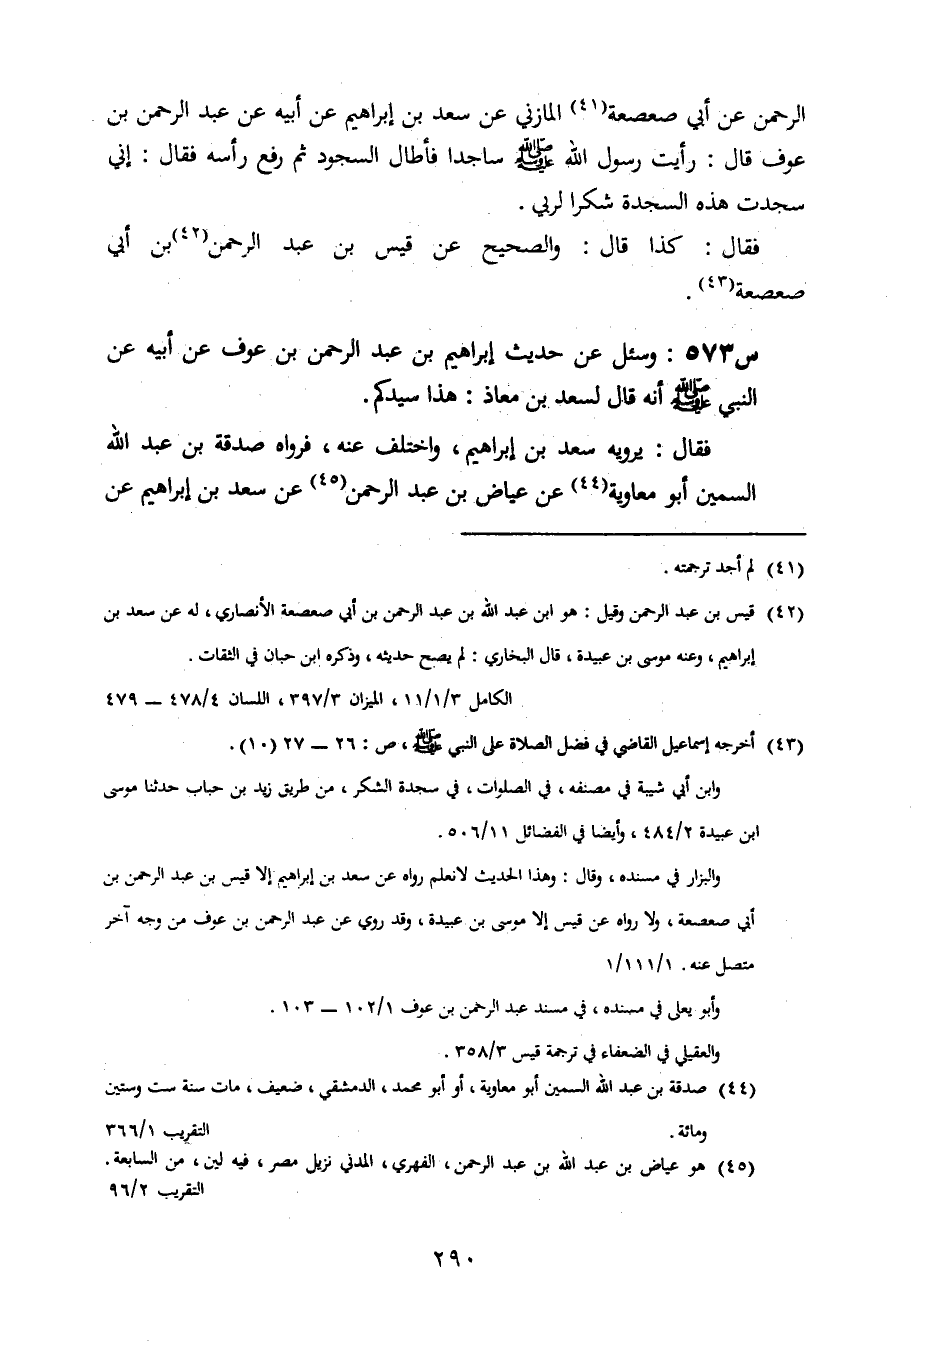 الرحمن عن أبي صعصعة(٤١) المازني عن سعد بن إبراهيم عن أبيه عن عبد الرحمن بن
عوف قال : رأيت رسول الله ﷺ ساجدا فأطال السجود ثم رفع رأسه فقال : إني
سجدت هذه السجدة شكرا لربي .
فقال : كذا قال : والصحيح عن قيس بن عبد الرحمن(٤٢) بن أبي
صعصعة(٤٣) .
س٥٧٣ : وسئل عن حديث إبراهيم بن عبد الرحمن بن عوف عن أبيه عن
النبي ﷺ أنه قال لسعد بن معاذ : هذا سيدكم.
فقال : يرويه سعد بن إبراهيم ، واختلف عنه ، فرواه صدقة بن عبد الله
السمين أبو معاوية(٤٤) عن عياض بن عبد الرحمن(٤٥) عن سعد بن إبراهيم عن
(٤١) لم أجد ترجمته .
(٤٢) قيس بن عبد الرحمن وقيل : هو ابن عبد الله بن عبد الرحمن بن أبي صعصعة الأنصاري ، له عن سعد بن
إبراهيم ، وعنه موسى بن عبيدة ، قال البخاري : لم يصح حديثه ، وذكره ابن حبان في الثقات .
الكامل ١١/١/٣ ، الميزان ٣٩٧/٣ ، اللسان ٤٧٨/٤ — ٤٧٩
(٤٣) أخرجه إسماعيل القاضي في فضل الصلاة على النبي ﷺ ، ص : ٢٦ — ٢٧ (١٠) .
وابن أبي شيبة في مصنفه ، في الصلوات ، في سجدة الشكر ، من طريق زيد بن حباب حدثنا موسى
ابن عبيدة ٤٨٤/٢ ، وأيضا في الفضائل ٥٠٦/١١ .
والبزار في مسنده ، وقال : وهذا الحديث لانعلم رواه عن سعد بن إبراهيم إلا قيس بن عبد الرحمن بن
أبي صعصعة ، ولا رواه عن قيس إلا موسى بن عبيدة ، وقد روي عن عبد الرحمن بن عوف من وجه آخر
متصل عنه . ١/١١١/١
وأبو يعلى في مسنده ، في مسند عبد الرحمن بن عوف ١٠٢/١ — ١٠٣ .
والعقيلي في الضعفاء في ترجمة قيس ٣٥٨/٣ .
(٤٤) صدقة بن عبد الله السمين أبو معاوية ، أو أبو محمد ، الدمشقي ، ضعيف ، مات سنة ست وستين
ومائة . التقريب ٣٦٦/١
(٤٥) هو عياض بن عبد الله بن عبد الرحمن ، الفهري ، المدني نزيل مصر ، فيه لين ، من السابعة .
التقريب ٩٦/٢
٢٩٠